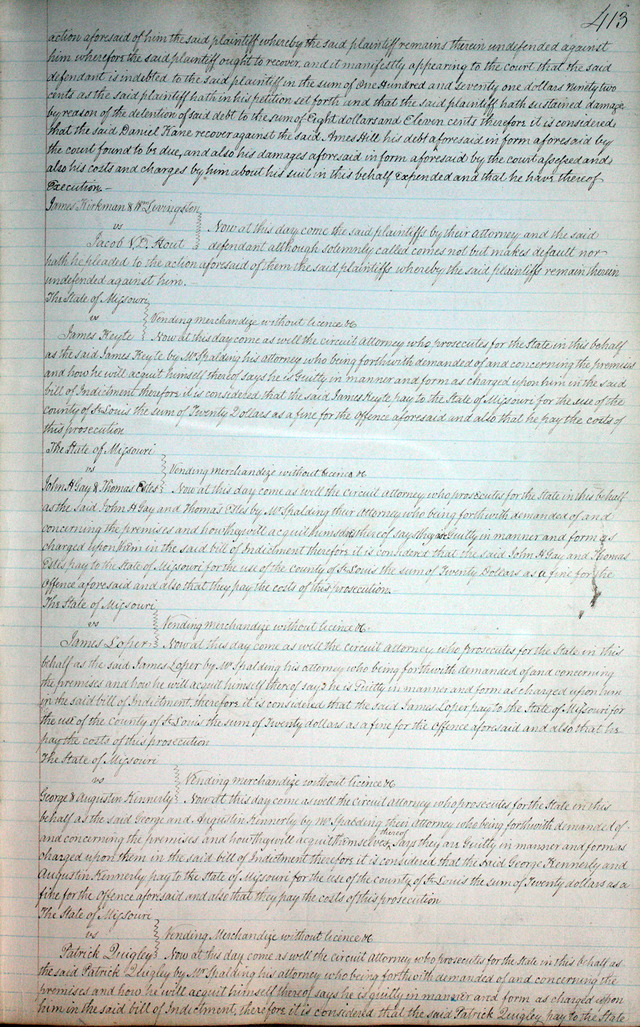 413
action aforesaid of him the said plaintiff whereby the said plaintiff remains therein undefended against
him wherefore the said plaintiff ought to recover, and it manifestly appearing to the court that the said
defendant is indebted to the said plaintiff in the sum of One Hundred and seventy one dollars Ninty two
cents as the said plaintiff hath in his petition set forth and that the said plaintiff hath sustained damage
by reason of the detention of said debt to the sum of Eight dollars and Eleven cents therefore it is considered
that the said Daniel Kane recover against the said Ames Hill his debt aforesaid in form aforesaid by
the court found to be due, and also his damages aforesaid in form aforesaid by the court assessed and
also his costs and charges by him about his suit in this behalf expended and that he have thereof
Execution.—
James Kirkman & Wm Livingston
vs Now at this day come the said plaintiffs by their Attorney and the said
Jacob V.D. Hout defendant although solemnly called comes not but makes default nor
hath he pleaded to the action aforesaid of them the said plaintiffs whereby the said plaintiffs remain therein
undefended against him.
The State of Missouri
vs Vending merchandize without licence &c
James Keyte Now at this day come as well the circuit attorney who prosecutes for the State in this behalf
as the said James Keyte by Mr Spalding his attorney who being forthwith demanded of and concerning the premises
and how he will acquit himself thereof says he is Guilty in manner and form as charged upon him in the said
bill of Indictment therefore it is considered that the said James Keyte pay to the State of Missouri for the use of the
county of St Louis the sum of Twenty Dollars as a fine for the Offence aforesaid and also that he pay the costs of
this prosecution
The State of Missouri
vs Vending merchandize without licence &c
John H Gay & Thomas Estes Now at this day come as well the circuit attorney who prosecutes for the State in this behalf
as the said John H Gay and Thomas Estes by Mr Spalding their Attorney who being forthwith demanded of and
concerning the premises and how they will acquit thereof say they are Guilty in manner and form as
charged upon them in the said bill of Indictment therefore it is considered that the said John H Gay and Thomas
Estes pay to the State of Missouri for the use of the county of St Louis the sum of Twenty Dollars as a fine for the
Offence aforesaid and also that they pay the costs of this prosecution.
The State of Missouri
vs Vending merchandize without licence &c.
James Loper Now at this day come as well the circuit attorney who prosecutes for the State in this
behalf as the said James Loper by Mr Spalding his attorney who being forthwith demanded of and concerning
the premises and how he will acquit himself thereof says he is Guilty in manner and form as charged upon him
in the said bill of Indictment, therefore it is considered that the said James Loper pay to the State of Missouri for
the use of the County of St Louis the sum of Twenty dollars as a fine for the Offence aforesaid and also that he
pay the costs of this prosecution
The State of Missouri
vs Vending merchandize without licence &c
George & Augustin Kennerly Now at this day come as well the circuit attorney who prosecutes for the State in this
behalf as the said George and Augustin Kennerly by Mr Spalding their Attorney who being forthwith demanded of
and concerning the premises and how they will acquit themselves thereof says they are Guilty in manner and form as
charged upon them in the said bill of Indictment therefore it is considered that the said George Kennerly and
Augustin Kennerly pay to the State of Missouri for the use of the county of St Louis the sum of Twenty dollars as a
fine for the Offence aforesaid and also that they pay the costs of this prosecution
The State of Missouri
vs Vending Merchandize without licence &c.
Patrick Quigley Now at this day come as well the circuit Attorney who prosecutes for the State in this behalf as
the said Patrick Quigley by Mr Spalding his attorney who being forthwith demanded of and concerning the
premises and how he will acquit himself thereof says he is guilty in manner and form as charged upon
him in the said bill of Indictment, therefore it is considered that the said Patrick Quigley pay to the State